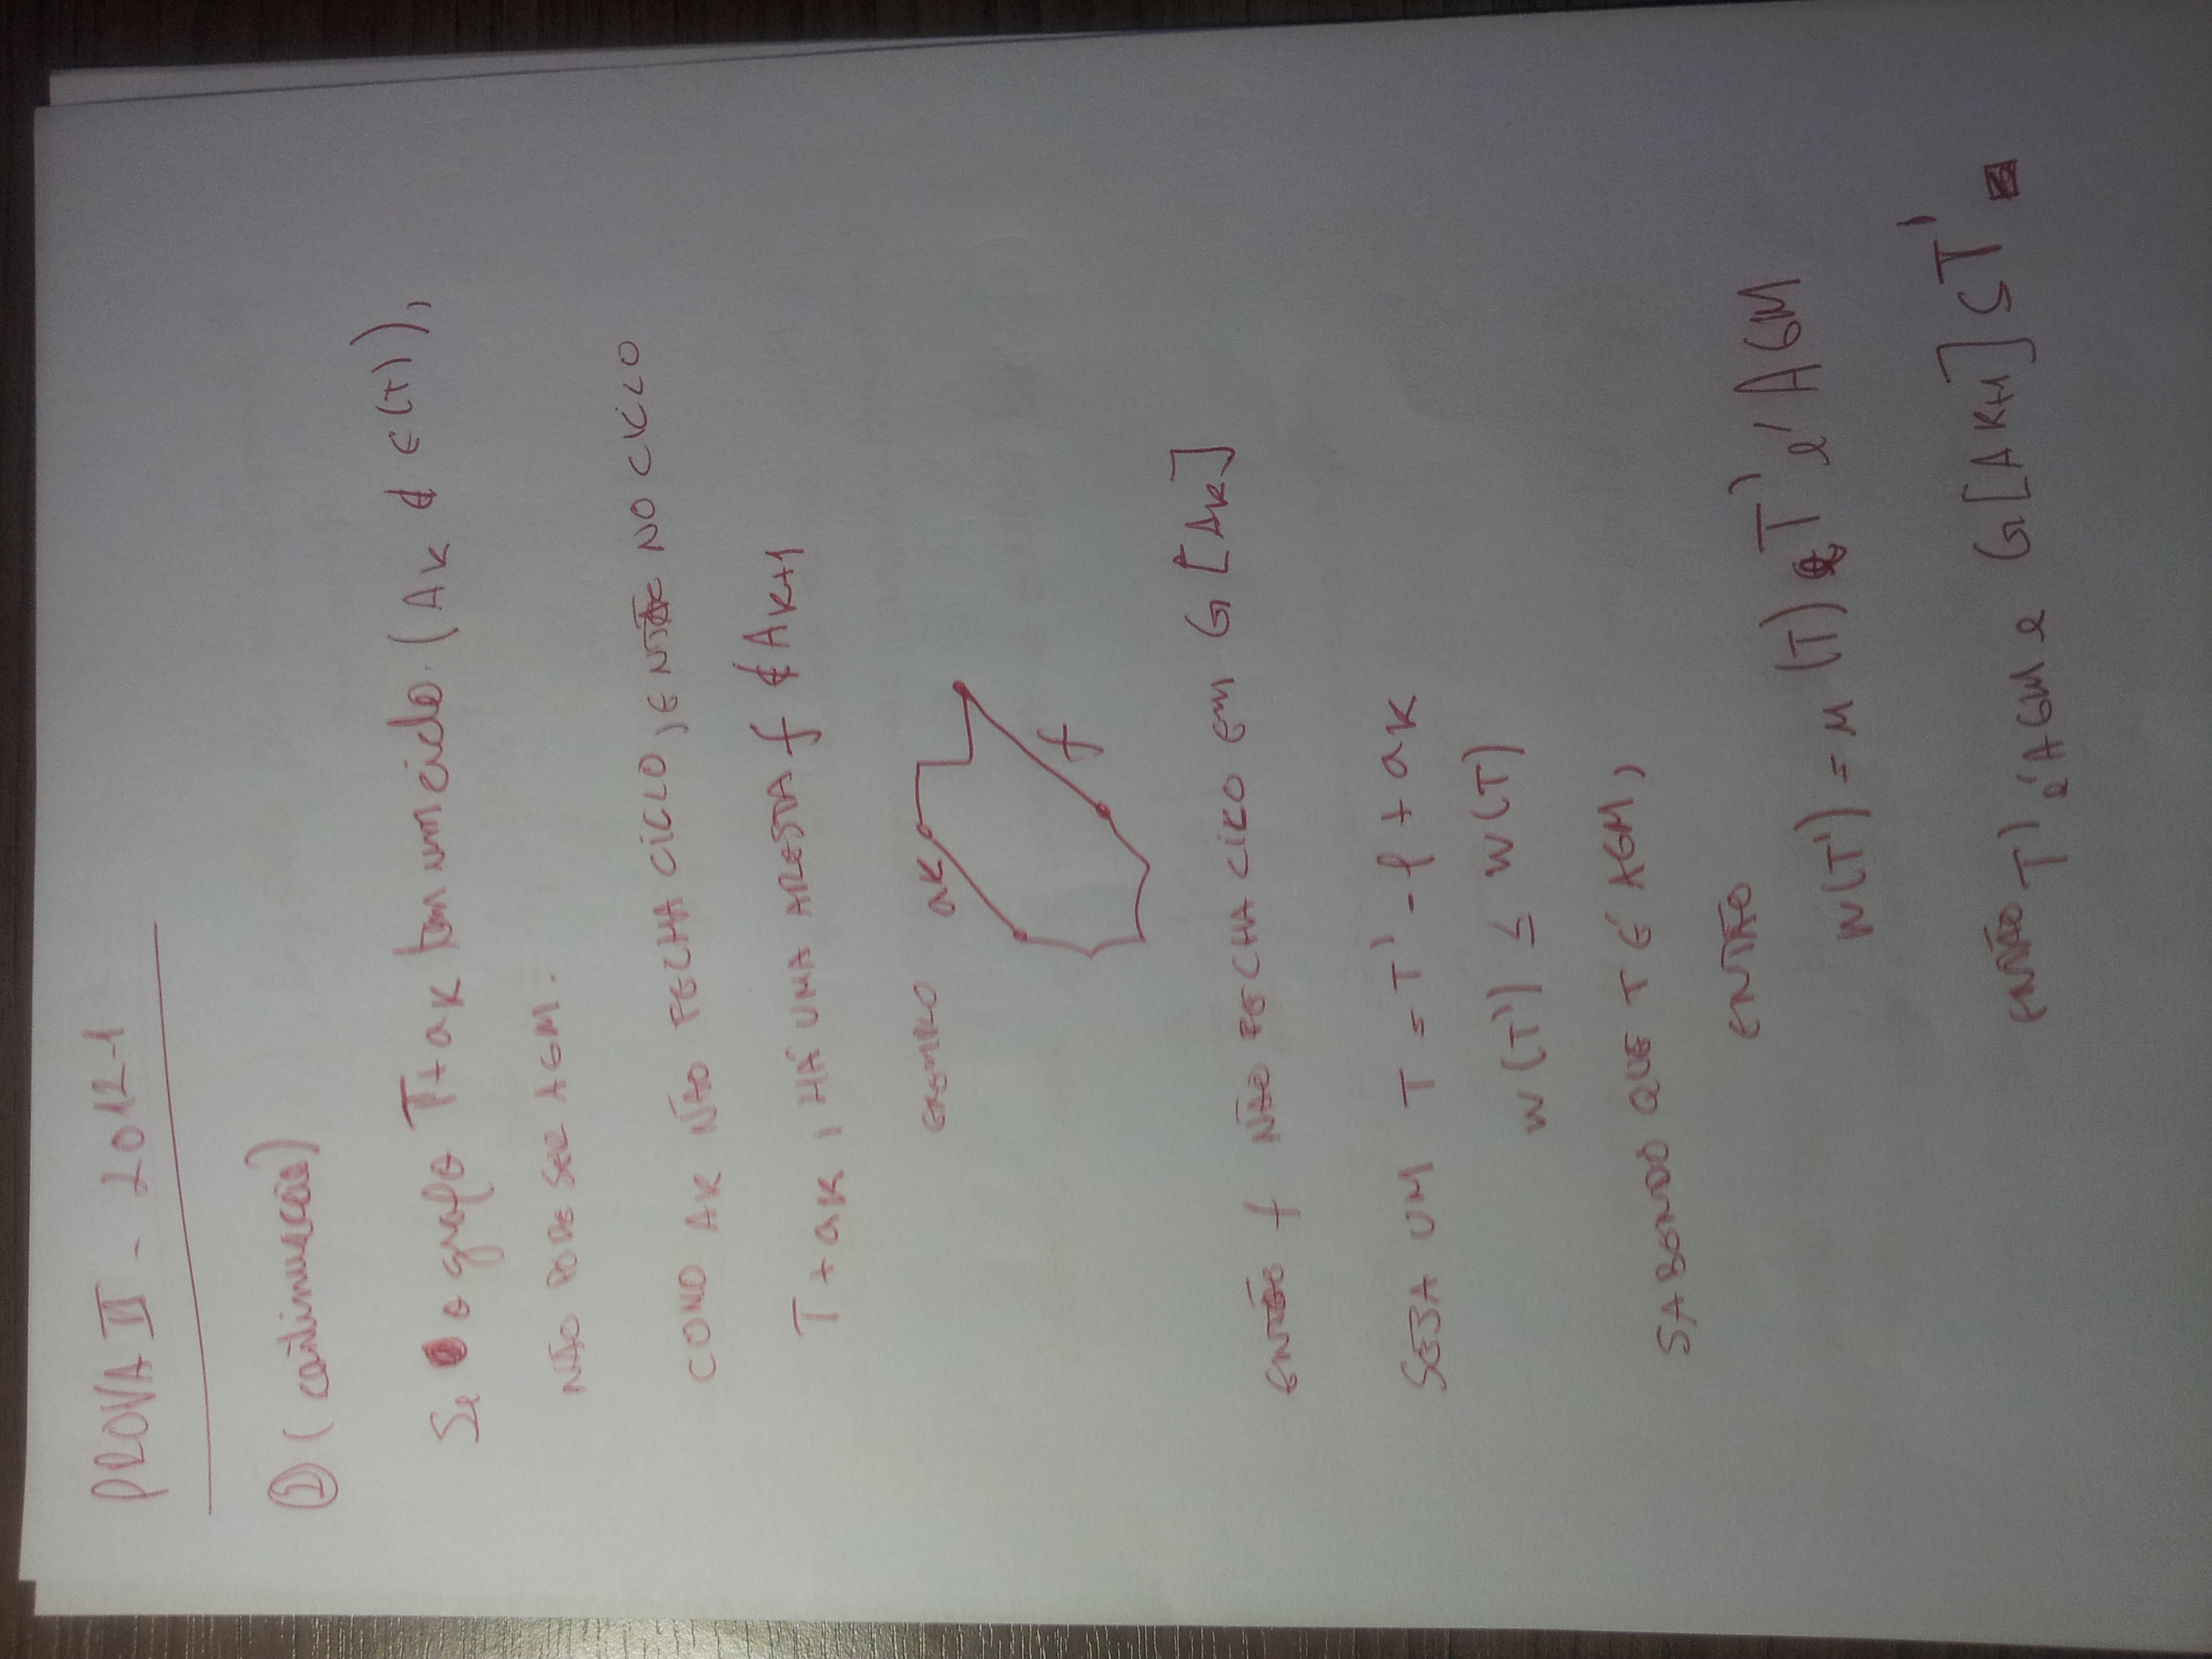 PROVA II - 2012-1
① (continuação)
Se o grafo T+ak tem um ciclo. (Ak ∉ E(T)),
NÃO PODE SER AGM.
COMO AK NÃO FECHA CICLO, ENTÃO NO CICLO
T+aK, HÁ UMA ARESTA f ∉ AK+1
EXEMPLO aK
f
ENTÃO f NÃO FECHA CICLO EM G[AK]
SEJA UM T = T' - f + aK
W(T') ≤ W(T)
SABENDO QUE T É AGM,
ENTÃO
W(T') = W(T) e T' é AGM
ENTÃO T' é AGM e G[AK+1] ⊆ T'